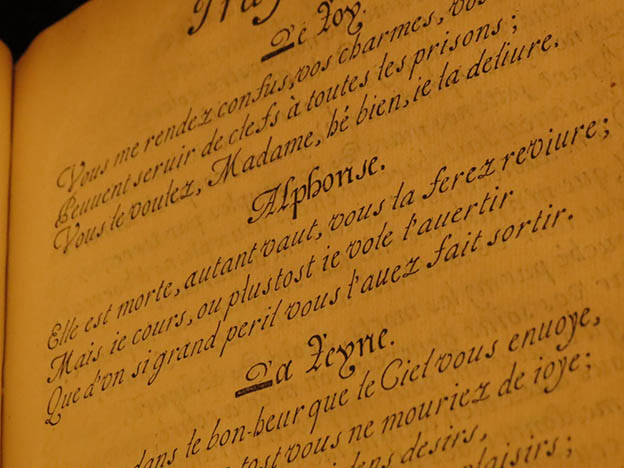 Le Roy.
Vous me rendez confus, vos charmes, vos
Peuuent seruir de clefs à toutes les prisons;
Vous le voulez, Madame, hé bien, ie la deliure.
Alphonse.
Elle est morte, autant vaut, vous la ferez reviure;
Mais ie cours, ou plustost ie vole l'auertir
Que d'vn si grand peril vous l'auez fait sortir.
La Reyne.
dans le bon-heur que le Ciel vous enuoye,
tost vous ne mouriez de ioye;
desirs,
plaisirs;